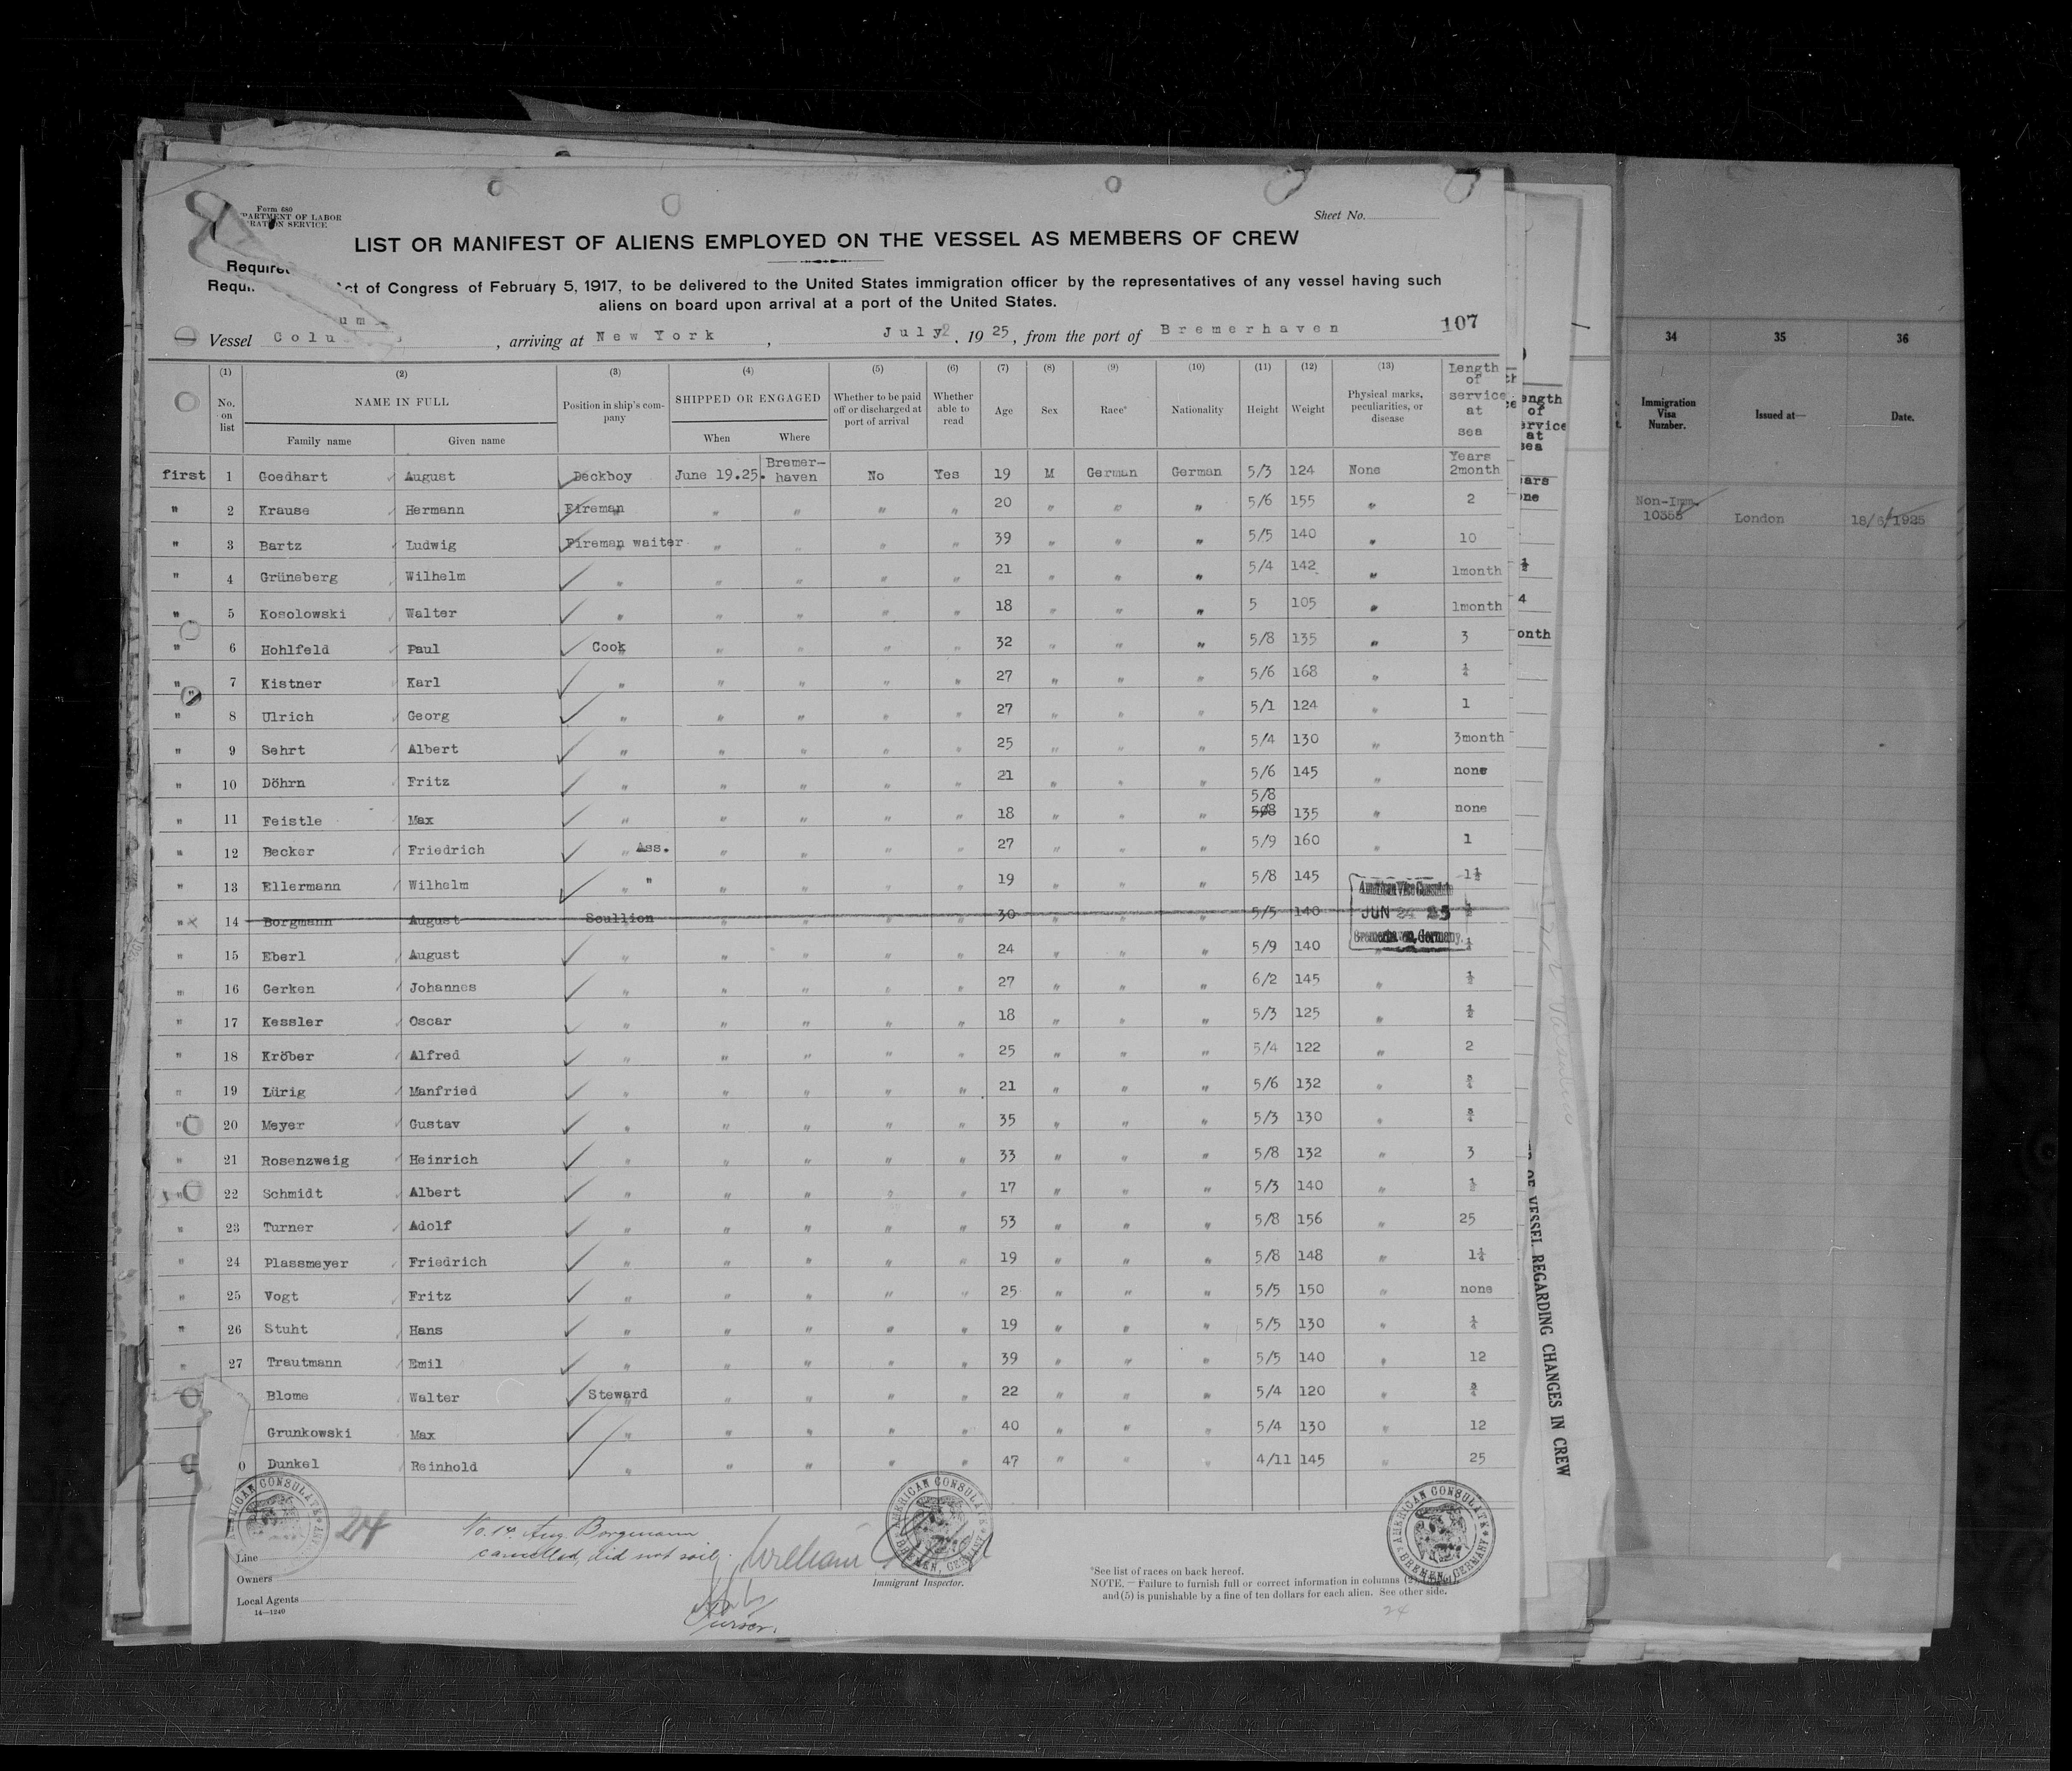 Form 680
PARTMENT OF LABOR
RATION SERVICE
Sheet No.
LIST OR MANIFEST OF ALIENS EMPLOYED ON THE VESSEL AS MEMBERS OF CREW
Required
Requi. Act of Congress of February 5, 1917, to be delivered to the United States immigration officer by the representatives of any vessel having such
aliens on board upon arrival at a port of the United States.
Vessel Colu um , arriving at New York , July 2, 1925, from the port of Bremerhaven 107
(1) (2) (3) (4) (5) (6) (7) (8) (9) (10) (11) (12) (13)
No. on list NAME IN FULL Family name Given name Position in ship's company SHIPPED OR ENGAGED When Where Whether to be paid off or discharged at port of arrival Whether able to read Age Sex Race* Nationality Height Weight Physical marks, peculiarities, or disease Length of service at sea
first 1 Goedhart August Deckboy June 19.25. Bremer-haven No Yes 19 M German German 5/3 124 None Years 2month
" 2 Krause Hermann Fireman " " " " 20 " " " 5/6 155 " 2
" 3 Bartz Ludwig Fireman waiter " " " " 39 " " " 5/5 140 " 10
" 4 Grüneberg Wilhelm " " " " " 21 " " " 5/4 142 " 1month
" 5 Kosolowski Walter " " " " " 18 " " " 5 105 " 1month
" 6 Hohlfeld Paul Cook " " " " 32 " " " 5/8 135 " 3
" 7 Kistner Karl " " " " " 27 " " " 5/6 168 " ¼
" 8 Ulrich Georg " " " " " 27 " " " 5/1 124 " 1
" 9 Sehrt Albert " " " " " 25 " " " 5/4 130 " 3month
" 10 Döhrn Fritz " " " " " 21 " " " 5/6 145 " none
" 11 Feistle Max " " " " " 18 " " " 5/8 135 " none
" 12 Becker Friedrich " Ass. " " " " 27 " " " 5/9 160 " 1
" 13 Ellermann Wilhelm " " " " " " 19 " " " 5/8 145 1½
" 14 Borgmann August Scullion " " " " 30 " " " 5/5 140 ½
American Vice Consulate
JUN 24 25
Bremerhaven, Germany.
" 15 Eberl August " " " " " 24 " " " 5/9 140 "
" 16 Gerken Johannes " " " " " 27 " " " 6/2 145 " ½
" 17 Kessler Oscar " " " " " 18 " " " 5/3 125 " ½
" 18 Kröber Alfred " " " " " 25 " " " 5/4 122 " 2
" 19 Lürig Manfried " " " " " 21 " " " 5/6 132 " ¾
" 20 Meyer Gustav " " " " " 35 " " " 5/3 130 " ¾
" 21 Rosenzweig Heinrich " " " " " 33 " " " 5/8 132 " 3
" 22 Schmidt Albert " " " " " 17 " " " 5/3 140 " ½
" 23 Turner Adolf " " " " " 53 " " " 5/8 156 " 25
" 24 Plassmeyer Friedrich " " " " " 19 " " " 5/8 148 " 1¼
" 25 Vogt Fritz " " " " " 25 " " " 5/5 150 " none
" 26 Stuht Hans " " " " " 19 " " " 5/5 130 " ¼
" 27 Trautmann Emil " " " " " 39 " " " 5/5 140 " 12
Blome Walter Steward " " " " 22 " " " 5/4 120 " ¾
Grunkowski Max " " " " " 40 " " " 5/4 130 " 12
0 Dunkel Reinhold " " " " " 47 " " " 4/11 145 " 25
AMERICAN CONSULATE
AMERICAN CONSULATE BREMEN, GERMANY
AMERICAN CONSULATE BREMEN, GERMANY
24
No. 14. Aug. Borgmann
cancelled, did not sail.
Purser.
Immigrant Inspector.
Line
Owners
Local Agents
14—1240
*See list of races on back hereof.
NOTE.—Failure to furnish full or correct information in columns (2),
and (5) is punishable by a fine of ten dollars for each alien. See other side.
24
ength
of
ervice
at
sea
ars
one
½
4
onth
OF VESSEL REGARDING CHANGES IN CREW
34 35 36
Immigration Visa Number. Issued at— Date.
Non-Imm. 10358 London 18/6/1925